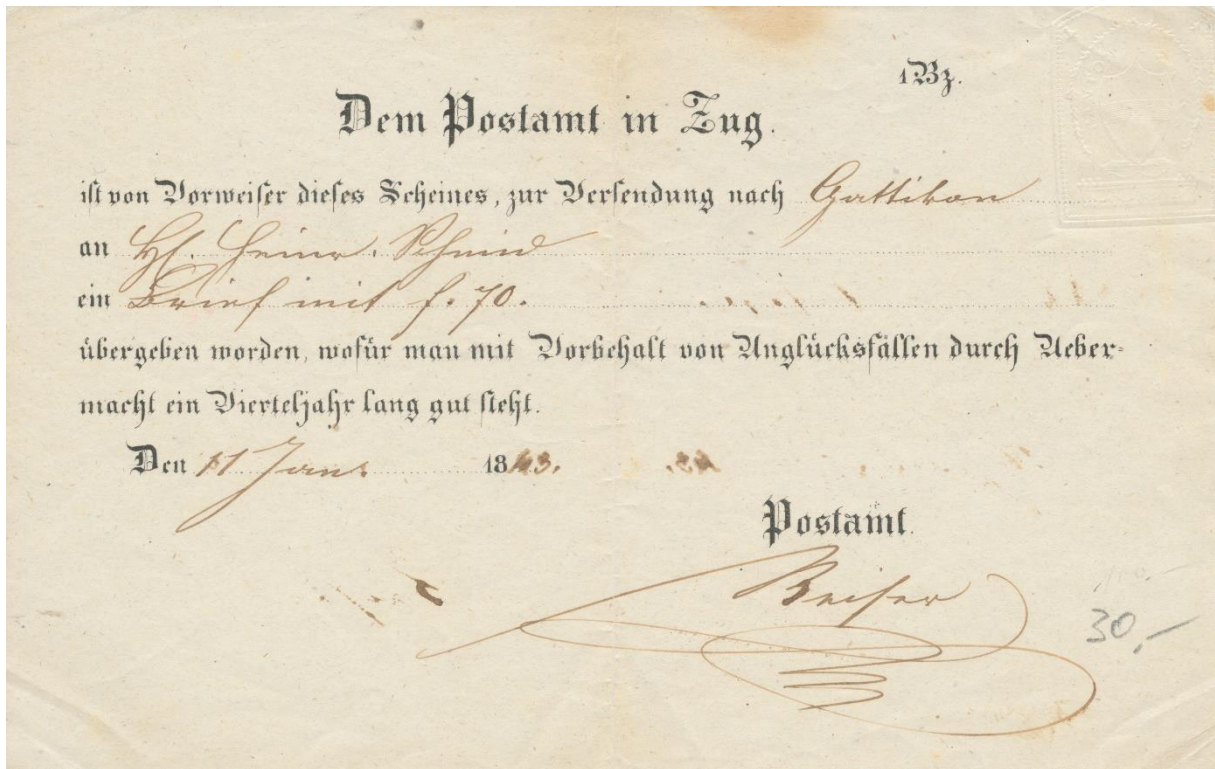 1 Bz.
Dem Postamt in Zug.
ist von Vorweiser dieses Scheines, zur Versendung nach Gattikon
an H. Heinr. Schmid
ein Brief mit f. 70.
übergeben worden, wofür man mit Vorbehalt von Unglücksfällen durch Ueber-
macht ein Vierteljahr lang gut steht.
Den 11 Jan. 1843.
Postamt.
Keiser
30,-